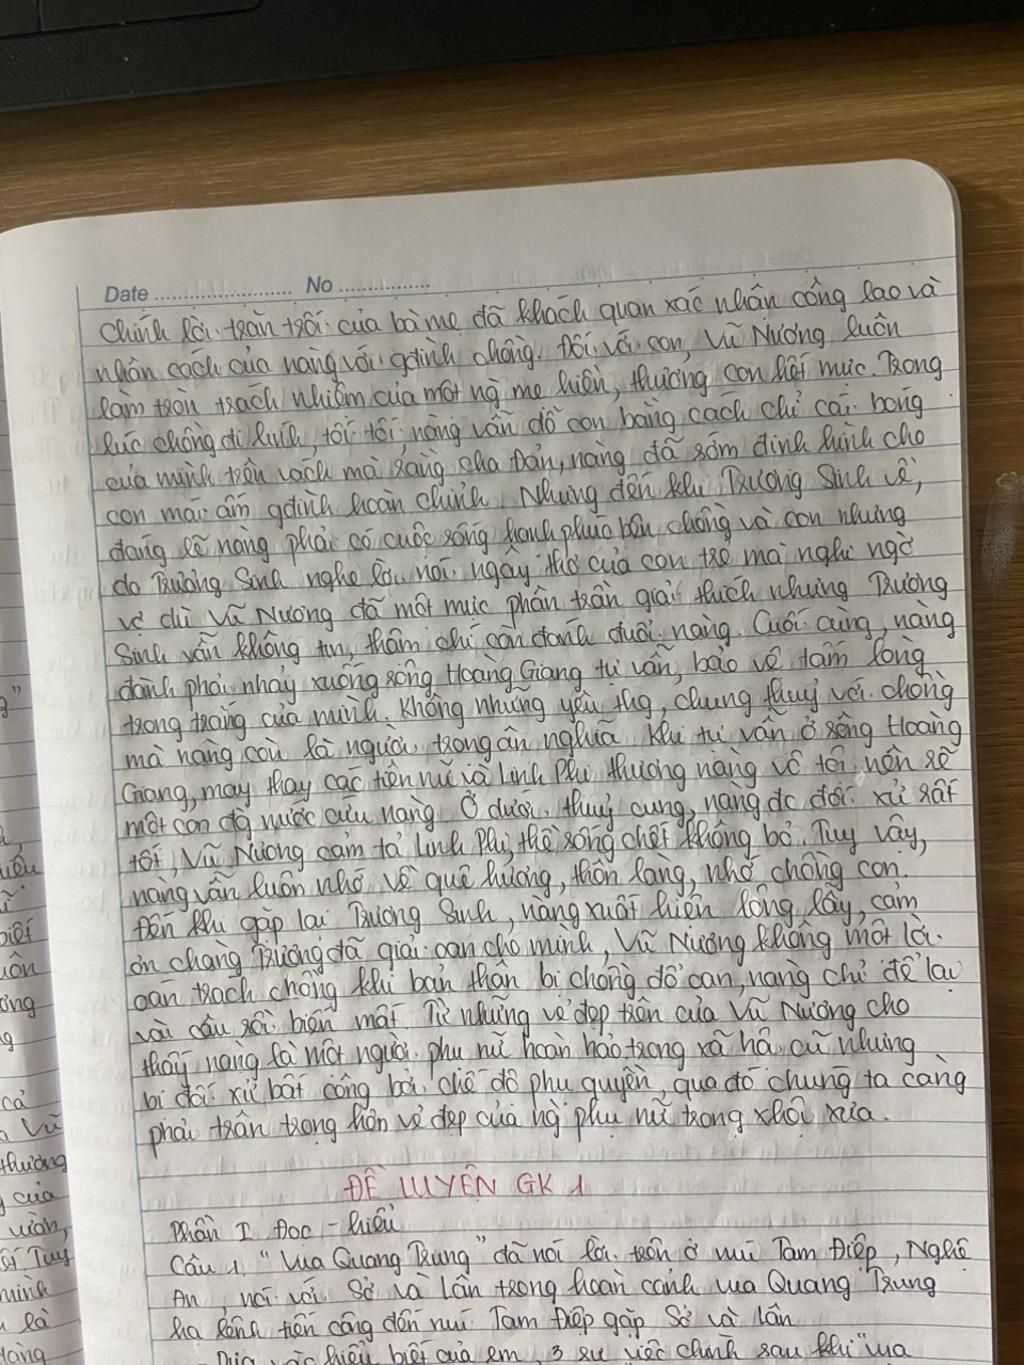 Date ........................ No ................
Chính lời trăn trối của bà mẹ đã khách quan xác nhận công lao và
nhân cách của nàng với gđình chồng. Đối với con, Vũ Nương luôn
làm tròn trách nhiệm của một ng mẹ hiền, thương con hết mực. Trong
lúc chồng đi lính, tối tối, nàng vẫn dỗ con bằng cách chỉ cái bóng
của mình trên vách mà rằng cha Đản, nàng đã sớm định hình cho
con mái ấm gđình hoàn chỉnh. Nhưng đến khi Trương Sinh về,
đáng lẽ nàng phải có cuộc sống hạnh phúc bên chồng và con nhưng
do Trương Sinh nghe lời nói ngây thơ của con trẻ mà nghi ngờ
vợ dù Vũ Nương đã một mực phân trần giải thích nhưng Trương
Sinh vẫn không tin, thậm chí còn đánh đuổi nàng. Cuối cùng, nàng
đành phải nhảy xuống sông Hoàng Giang tự vẫn, bảo vệ tấm lòng
trong trắng của mình. Không những yêu thg, chung thuỷ với chồng
mà nàng còn là người trọng ân nghĩa. Khi tự vẫn ở sông Hoàng
Giang, may thay các tiên nữ và Linh Phi thương nàng vô tội nên rẽ
một con đg nước cứu nàng. Ở dưới thuỷ cung, nàng đc đối xử rất
tốt, Vũ Nương cảm tạ Linh Phi, thề sống chết không bỏ. Tuy vậy,
nàng vẫn luôn nhớ về quê hương, thôn làng, nhớ chồng con.
Đến khi gặp lại Trương Sinh, nàng xuất hiện lộng lẫy, cảm
ơn chàng Trương đã giải oan cho mình, Vũ Nương không một lời
oán trách chồng khi bản thân bị chồng đổ oan, nàng chỉ để lại
vài câu rồi biến mất. Từ những vẻ đẹp trên của Vũ Nương cho
thấy nàng là một người phụ nữ hoàn hảo trong xã hội cũ nhưng
bị đối xử bất công bởi chế độ phụ quyền, qua đó chúng ta càng
phải trân trọng hơn vẻ đẹp của ng phụ nữ trong xhội xưa.
ĐỀ LUYỆN GK 1
Phần I. Đọc - hiểu
Câu 1. "Vua Quang Trung" đã nói lời trên ở núi Tam Điệp, Nghệ
An, nói với Sở và Lân trong hoàn cảnh vua Quang Trung
hạ lệnh tiến công đến núi Tam Điệp gặp Sở và Lân
hiểu biết của em, 3 sự việc chính sau khi "vua